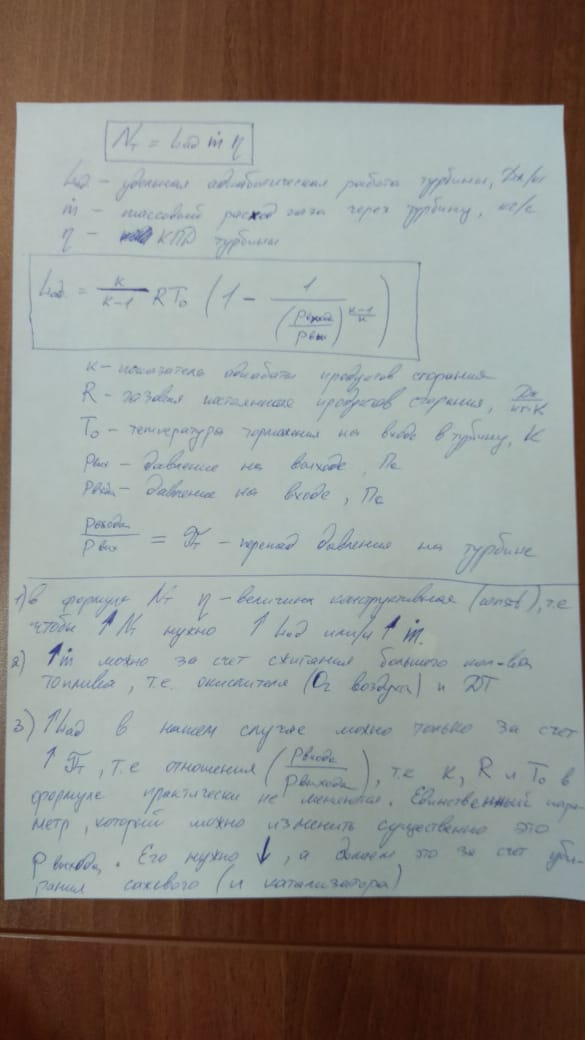 Nт = Lад ṁ η
Lад – удельная адиабатическая работа турбины, Дж/кг
ṁ – массовый расход газа через турбину, кг/с
η – КПД турбины
Lад = k/(k-1) RT₀ (1 - 1/(Pвхода/Pвых)^((k-1)/k))
k – показатель адиабаты продуктов сгорания
R – газовая постоянная продуктов сгорания, Дж/кг·К
T₀ – температура торможения на входе в турбину, К
Pвых – давление на выходе, Па
Pвхда – давление на входе, Па
Pвхода/Pвых = πт – перепад давления на турбине
1) в формуле Nт η – величина конструктивная (), т.е
чтобы ↑ Nт нужно ↑ Lад или/и ↑ ṁ.
2) ↑ṁ можно за счет сжигания большого кол-ва
топлива, т.е. окислителя (O₂ воздуха) и ДТ
3) ↑Lад в нашем случае можно только за счет
↑ πт, т.е отношения (Pвхода/Pвыхода), т.к k, R и T₀ в
формуле практически не меняются. Единственный пара-
метр, который можно изменить существенно это
Pвыхода. Его нужно ↓, а делаем это за счет уби-
рания сажевого (и катализатора)